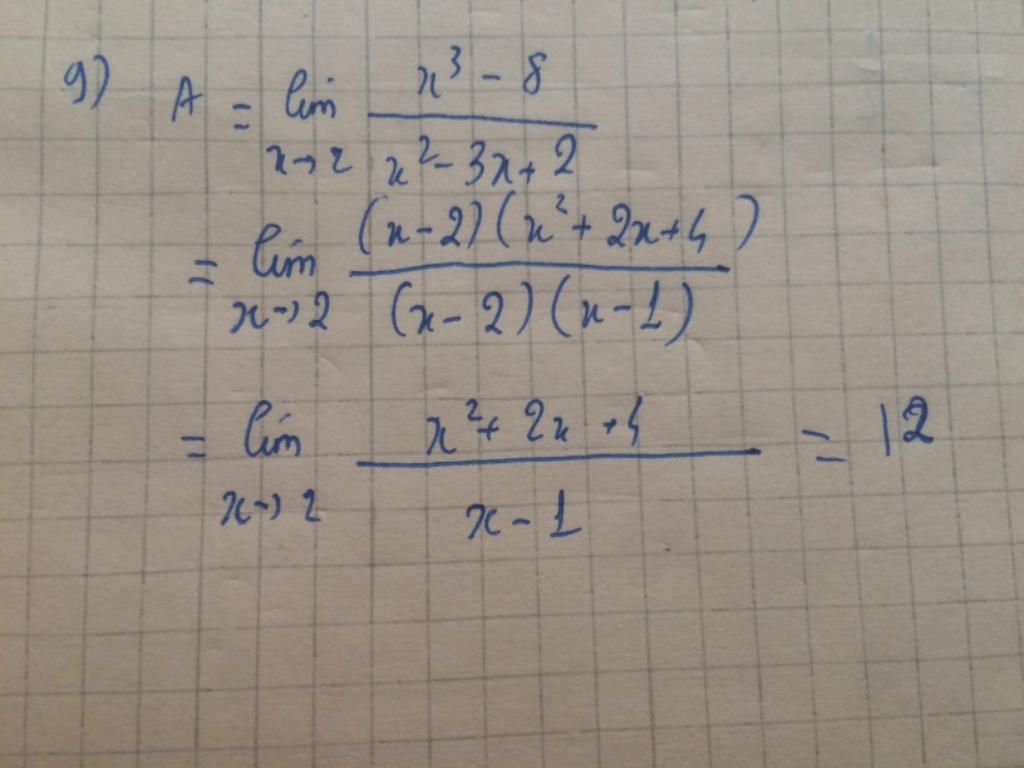 9) A = lim x→2 (x³ - 8) / (x² - 3x + 2)
= lim x→2 (x-2)(x² + 2x + 4) / (x-2)(x-1)
= lim x→2 (x² + 2x + 4) / (x - 1) = 12